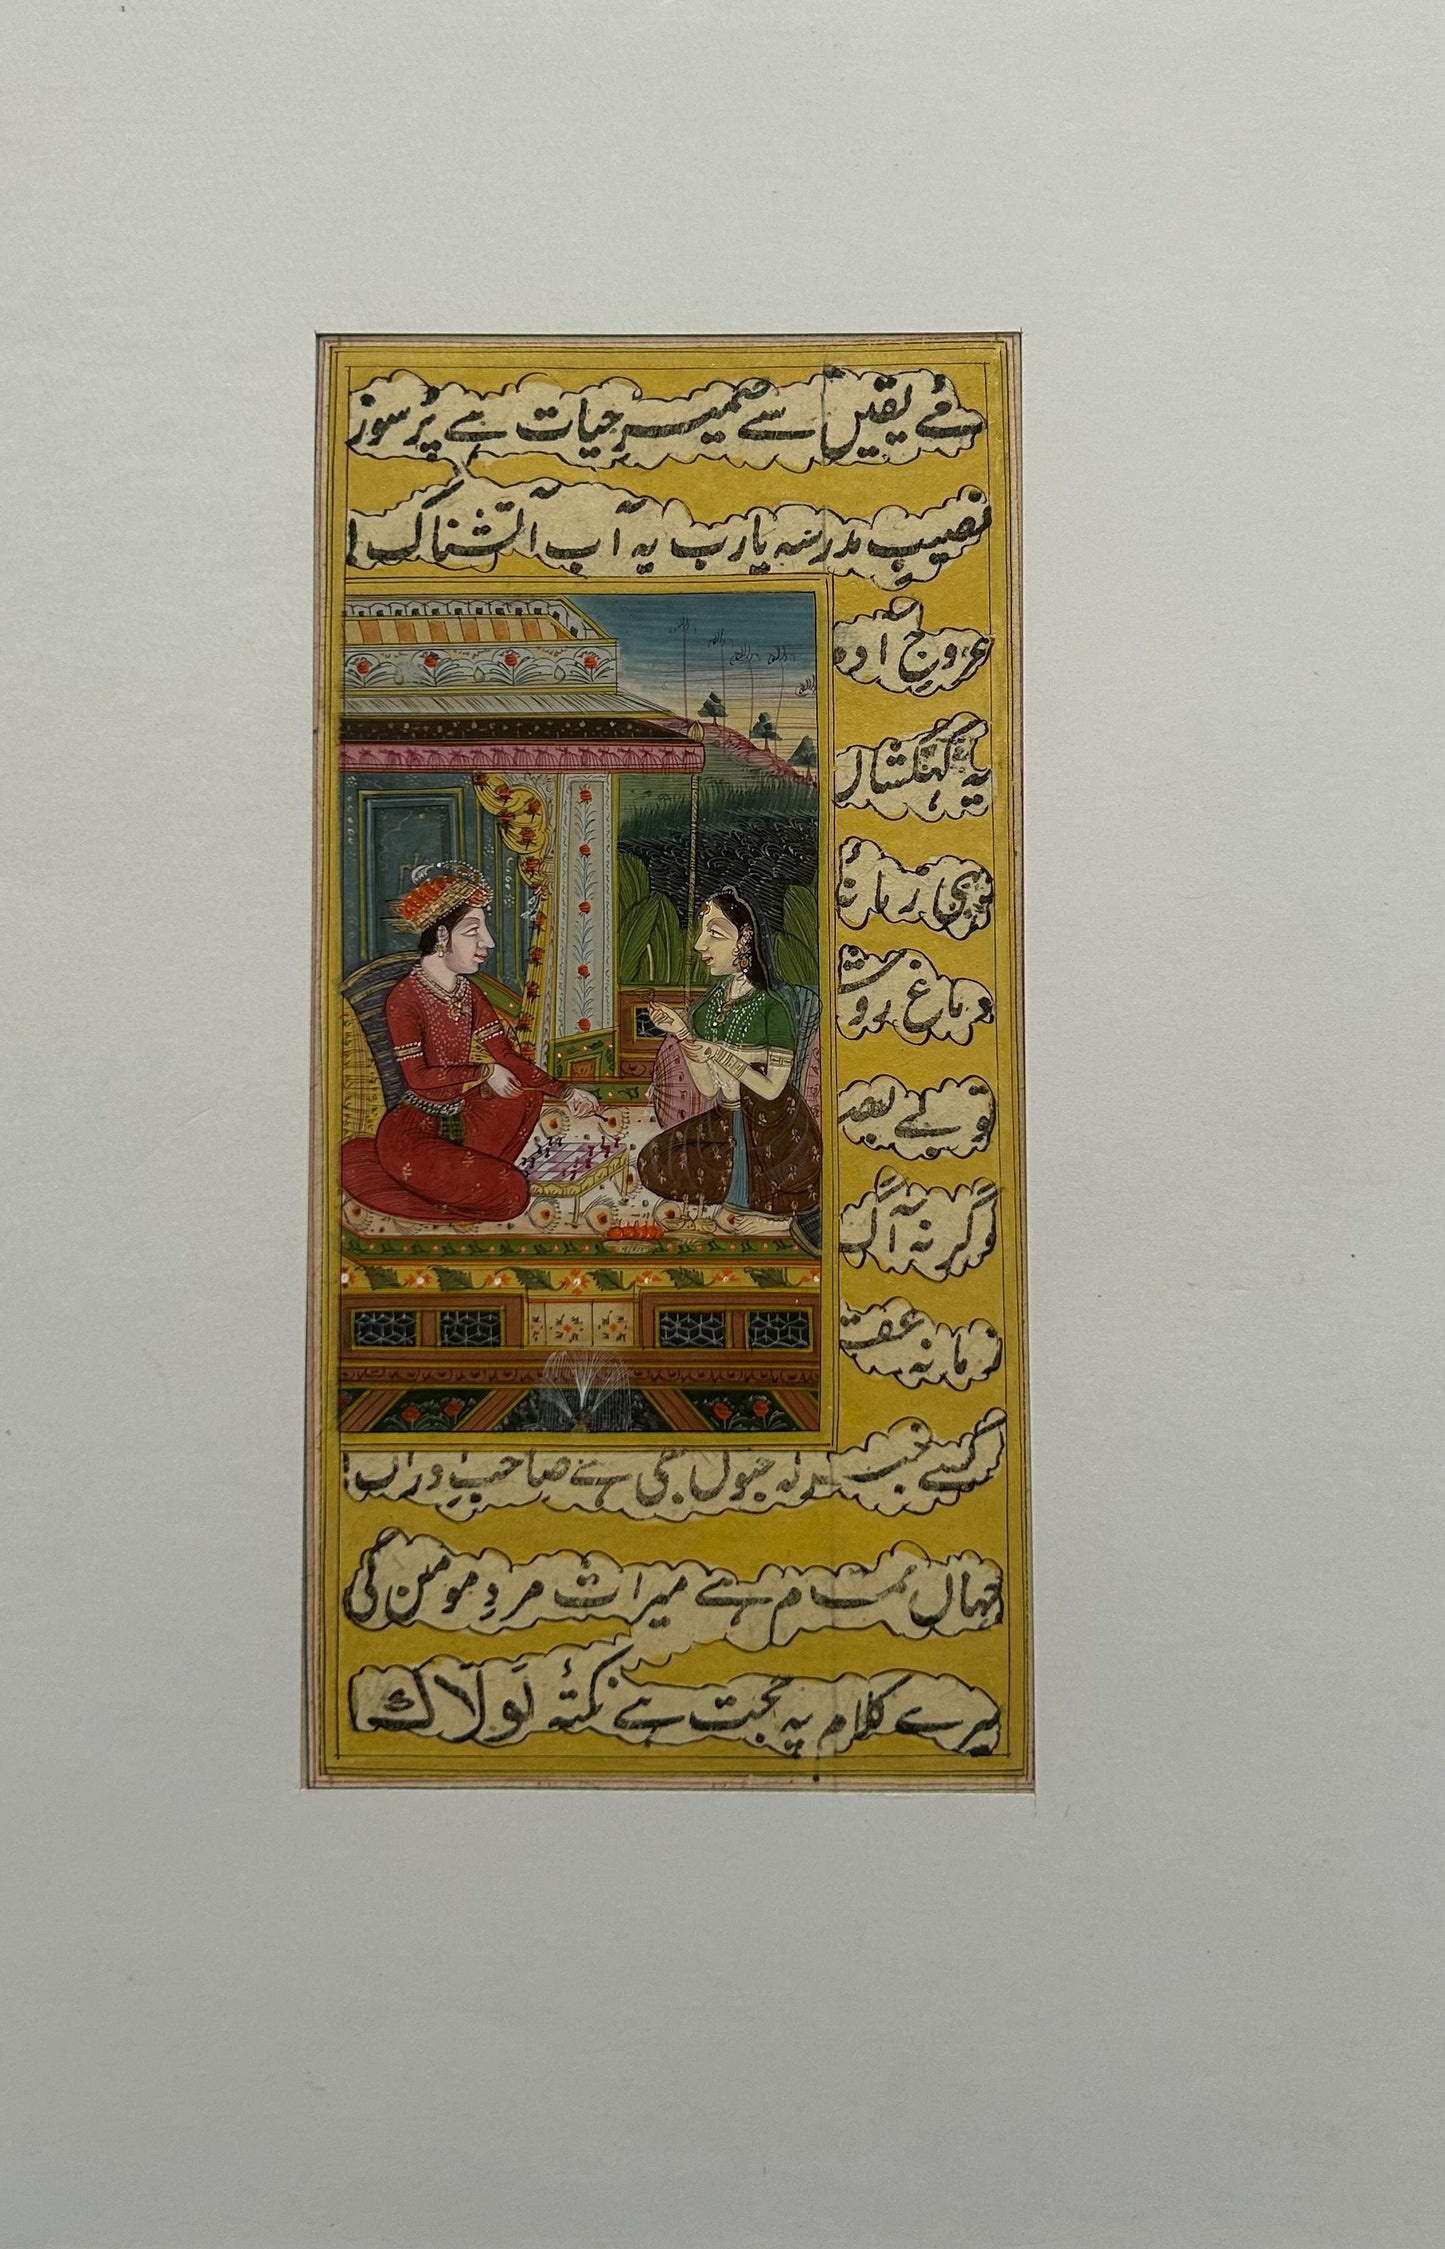 مۓ یقیں سے ضمیرِ حیات ہے پُر سوز
نصیبِ مدرسہ یا رب یہ آب آتشناک!
عروجِ آد
یہ کہکشاں
یہی زمانۂ
دماغ روش
تو لے بعد
وگرنہ آگ
زمانہ عق
کسے خب رنہ جنوں بھی ہے صاحبِ اد
جہاں تمام ہے میراث مردِ مومن کی
میرے کلام پہ حجت ہے نکتۂ لَولَاک